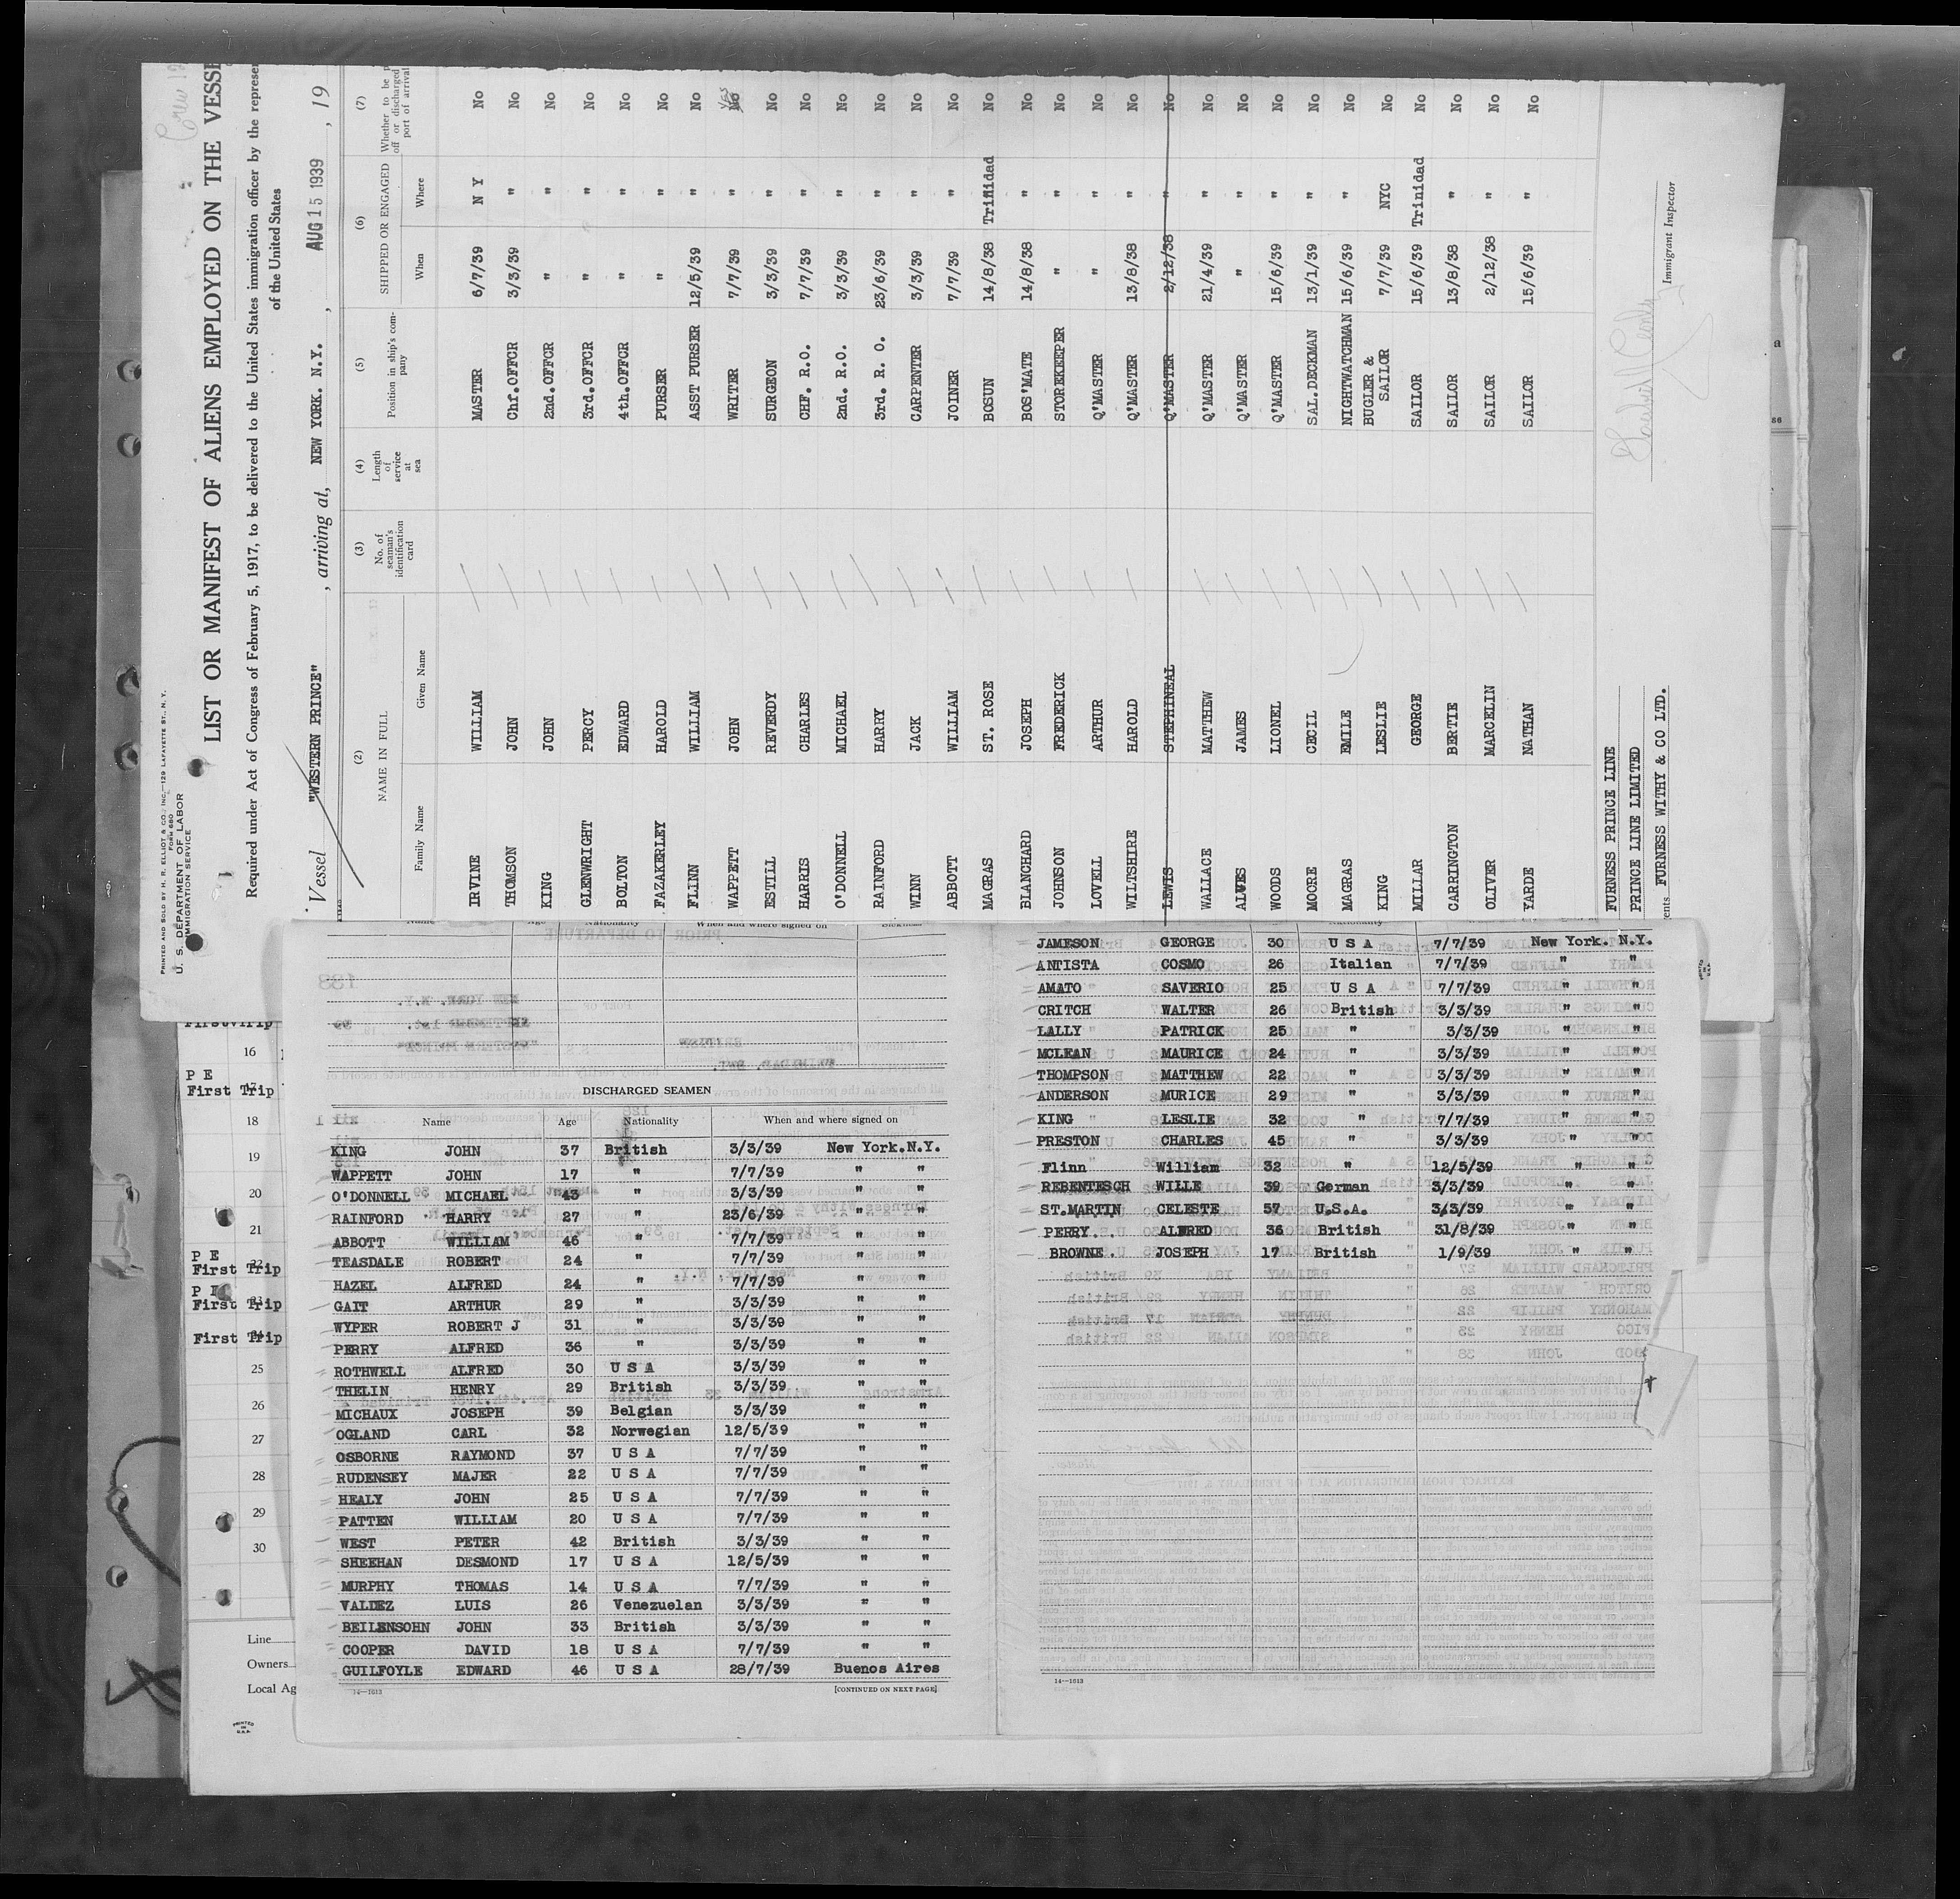 PRINTED AND SOLD BY H. R. ELLIOT & CO., INC.—129 LAFAYETTE ST., N. Y.
FORM 680
U. S. DEPARTMENT OF LABOR
IMMIGRATION SERVICE
Crew
LIST OR MANIFEST OF ALIENS EMPLOYED ON THE VESSE
Required under Act of Congress of February 5, 1917, to be delivered to the United States immigration officer by the represen
of the United States
Vessel "WESTERN PRINCE", arriving at, NEW YORK. N.Y., AUG 15 1939, 19
(2) (3) (4) (5) (6) (7)
NAME IN FULL No. of seaman's identification card Length of service at sea Position in ship's company SHIPPED OR ENGAGED Whether to be p off or discharged port of arrival
Family Name Given Name When Where
IRVINE WILLIAM MASTER 6/7/39 N Y No
THOMSON JOHN Chf.OFFCR 3/3/39 " No
KING JOHN 2nd.OFFCR " " No
GLENWRIGHT PERCY 3rd.OFFCR " " No
BOLTON EDWARD 4th.OFFCR " " No
FAZAKERLEY HAROLD PURSER " " No
FLINN WILLIAM ASST PURSER 12/5/39 " No
WAPPETT JOHN WRITER 7/7/39 " No YES
ESTILL REVERDY SURGEON 3/3/39 " No
HARRIS CHARLES CHF. R.O. 7/7/39 " No
O'DONNELL MICHAEL 2nd. R.O. 3/3/39 " No
RAINFORD HARRY 3rd. R. O. 23/6/39 " No
WINN JACK CARPENTER 3/3/39 " No
ABBOTT WILLIAM JOINER 7/7/39 " No
MAGRAS ST. ROSE BOSUN 14/8/38 Trinidad No
BLANCHARD JOSEPH BOS'MATE 14/8/38 " No
JOHNSON FREDERICK STOREKEEPER " " No
LOVELL ARTHUR Q'MASTER " " No
WILTSHIRE HAROLD Q'MASTER 13/8/38 " No
LEWIS STEPHINEAL Q'MASTER 2/12/38 " No
WALLACE MATTHEW Q'MASTER 21/4/39 " No
ALVES JAMES Q'MASTER " " No
WOODS LIONEL Q'MASTER 15/6/39 " No
MOORE CECIL SAL.DECKMAN 13/1/39 " No
MAGRAS EMILE NIGHTWATCHMAN 15/6/39 " No
KING LESLIE BUGLER & SAILOR 7/7/39 NYC No
MILLAR GEORGE SAILOR 15/6/39 Trinidad No
CARRINGTON BERTIE SAILOR 13/8/38 " No
OLIVER MARCELIN SAILOR 2/12/38 " No
YARDE NATHAN SAILOR 15/6/39 " No
FURNESS PRINCE LINE
PRINCE LINE LIMITED
ents FURNESS WITHY & CO LTD.
Immigrant Inspector
16
P E
First Trip 17
18
19
20
21
P E
First Trip
First Trip
First Trip
25
26
27
28
29
30
Line
Owners
Local Ag
PRINTED IN U.S.A.
Name Age Nationality When and where signed on
DISCHARGED SEAMEN
Name Age Nationality When and where signed on
KING JOHN 37 British 3/3/39 New York.N.Y.
WAPPETT JOHN 17 " 7/7/39 " "
O'DONNELL MICHAEL 43 " 3/3/39 " "
RAINFORD HARRY 27 " 23/6/39 " "
ABBOTT WILLIAM 46 " 7/7/39 " "
TEASDALE ROBERT 24 " 7/7/39 " "
HAZEL ALFRED 24 " 7/7/39 " "
GAIT ARTHUR 29 " 3/3/39 " "
WYPER ROBERT J 31 " 3/3/39 " "
PERRY ALFRED 36 " 3/3/39 " "
ROTHWELL ALFRED 30 U S A 3/3/39 " "
THELIN HENRY 29 British 3/3/39 " "
MICHAUX JOSEPH 39 Belgian 3/3/39 " "
OGLAND CARL 32 Norwegian 12/5/39 " "
OSBORNE RAYMOND 37 U S A 7/7/39 " "
RUDENSEY MAJER 22 U S A 7/7/39 " "
HEALY JOHN 25 U S A 7/7/39 " "
PATTEN WILLIAM 20 U S A 7/7/39 " "
WEST PETER 42 British 3/3/39 " "
SHEEHAN DESMOND 17 U S A 12/5/39 " "
MURPHY THOMAS 14 U S A 7/7/39 " "
VALDEZ LUIS 26 Venezuelan 3/3/39 " "
BEILENSOHN JOHN 33 British 3/3/39 " "
COOPER DAVID 18 U S A 7/7/39 " "
GUILFOYLE EDWARD 46 U S A 28/7/39 Buenos Aires
14—1613 [CONTINUED ON NEXT PAGE]
JAMESON GEORGE 30 U S A 7/7/39 New York. N.Y.
ANTISTA COSMO 26 Italian 7/7/39 " "
AMATO SAVERIO 25 U S A 7/7/39 " "
CRITCH WALTER 26 British 3/3/39 " "
LALLY PATRICK 25 " 3/3/39 " "
MCLEAN MAURICE 24 " 3/3/39 " "
THOMPSON MATTHEW 22 " 3/3/39 " "
ANDERSON MURICE 29 " 3/3/39 " "
KING LESLIE 32 " 7/7/39 " "
PRESTON CHARLES 45 " 3/3/39 " "
Flinn William 32 " 12/5/39 " "
REBENTESCH WILLE 39 German 3/3/39 " "
ST.MARTIN CELESTE 57 U.S.A. 3/3/39 " "
PERRY . . ALFRED 36 British 31/8/39 " "
BROWNE . JOSEPH 17 British 1/9/39 " "
14—1613